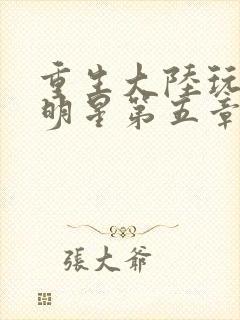 重生大陸玩
明星第五章
張大爺